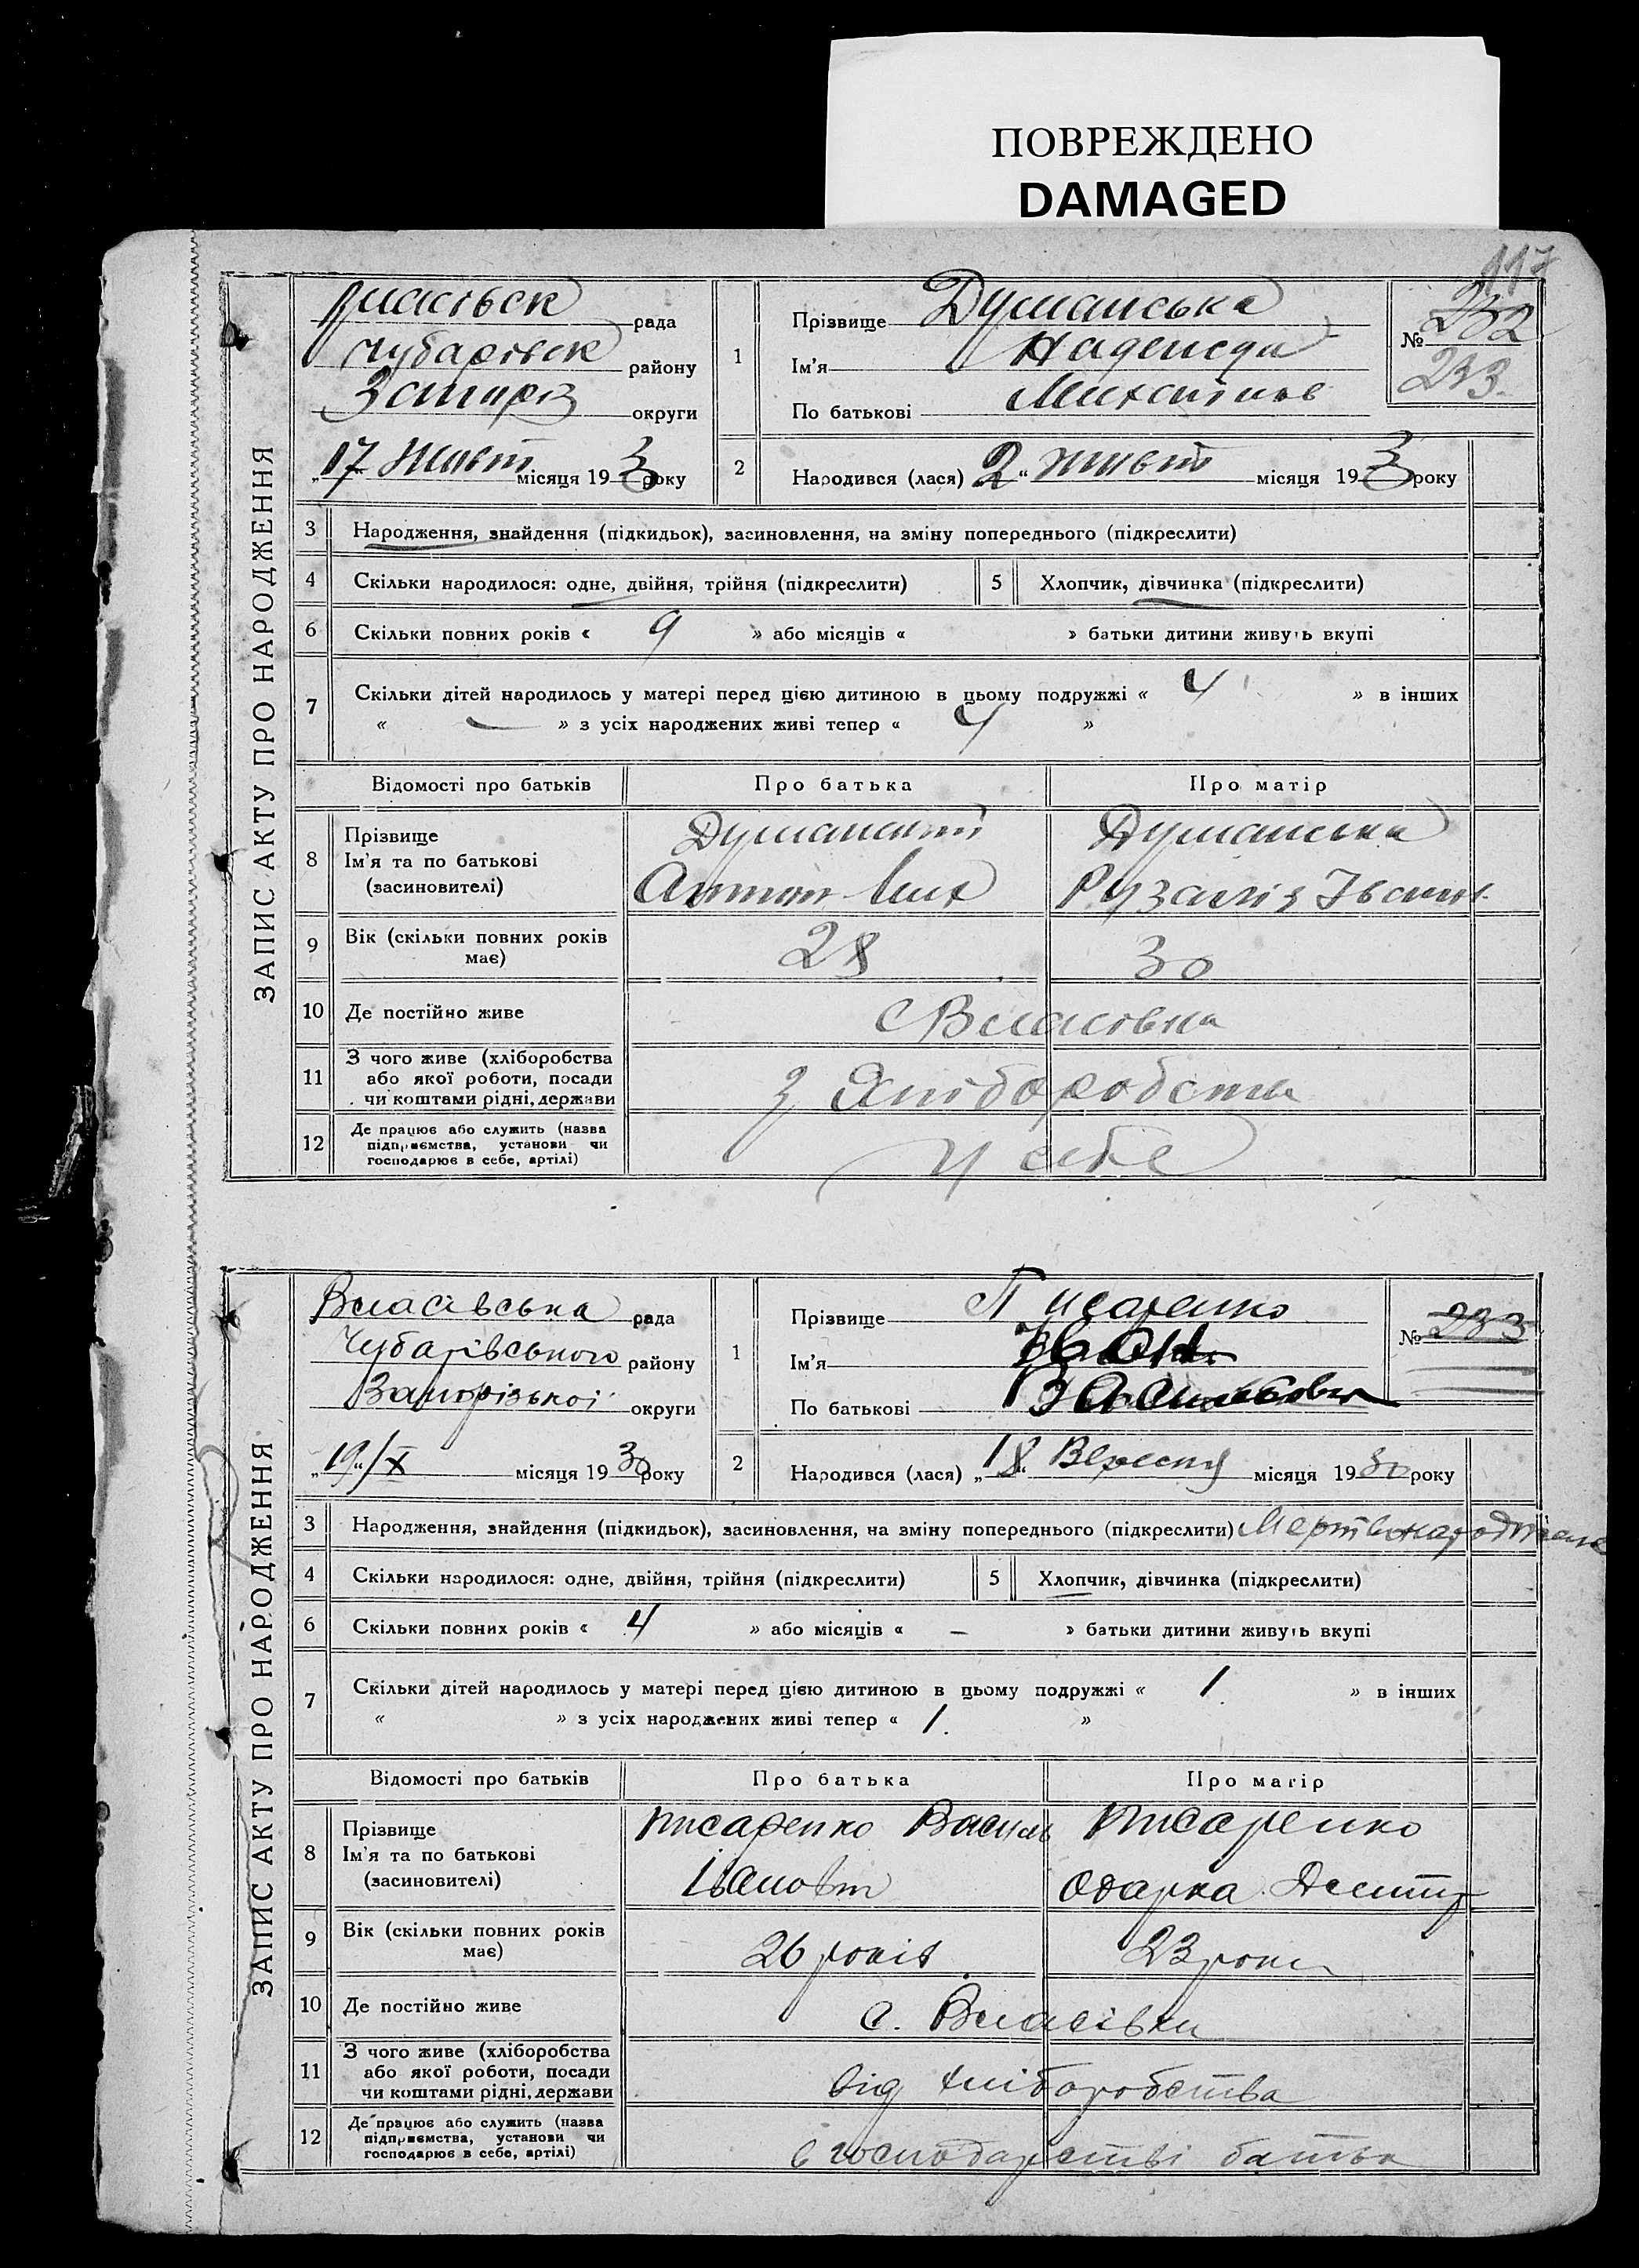 ПОВРЕЖДЕНО
DAMAGED
117
ЗАПИС АКТУ ПРО НАРОДЖЕННЯ
рада
Чубарівск району
Запоріз округи
„17 Жовт місяця 193 року
1 Прізвище Думанська
Ім'я Надежда
По батькові
№ 232
233.
2 Народився (лася) „2“ жовт місяця 193 року
3 Народження, знайдення (підкидьок), засиновлення, на зміну попереднього (підкреслити)
4 Скільки народилося: одне, двійня, трійня (підкреслити) 5 Хлопчик, дівчинка (підкреслити)
6 Скільки повних років « 9 » або місяців « » батьки дитини живуть вкупі
7 Скільки дітей народилось у матері перед цією дитиною в цьому подружжі « 4 » в інших
« — » з усіх народжених живі тепер « 4 »
Відомості про батьків Про батька Про матір
8 Прізвище Думанский Думанська
Ім'я та по батькові
(засиновителі) Антон Мих Рузалія Іванов.
9 Вік (скільки повних років має) 28 30
10 Де постійно живе с Власовка
11 З чого живе (хліборобства
або якої роботи, посади
чи коштами рідні, держави з Хліборобства
12 Де працює або служить (назва
підприємства, установи чи
господарює в себе, артілі) у себе
ЗАПИС АКТУ ПРО НАРОДЖЕННЯ
Власівська рада
Чубарівського району
Запорізької округи
„19“/X місяця 1930 року
1 Прізвище Писаренко
Ім'я Іван
По батькові Васильович
№ 233
2 Народився (лася) „18“ Вересня місяця 1930 року
3 Народження, знайдення (підкидьок), засиновлення, на зміну попереднього (підкреслити) Мертвонароджене
4 Скільки народилося: одне, двійня, трійня (підкреслити) 5 Хлопчик, дівчинка (підкреслити)
6 Скільки повних років « 4 » або місяців « – » батьки дитини живуть вкупі
7 Скільки дітей народилось у матері перед цією дитиною в цьому подружжі « 1 » в інших
« » з усіх народжених живі тепер « 1. »
Відомості про батьків Про батька Про матір
8 Прізвище Писаренко Василь Писаренко
Ім'я та по батькові
(засиновителі) Іванов Одарка Дмитр
9 Вік (скільки повних років має) 26 років 23 роки
10 Де постійно живе с. Власівка
11 З чого живе (хліборобства
або якої роботи, посади
чи коштами рідні, держави від хліборобства
12 Де працює або служить (назва
підприємства, установи чи
господарює в себе, артілі) в господарстві батька